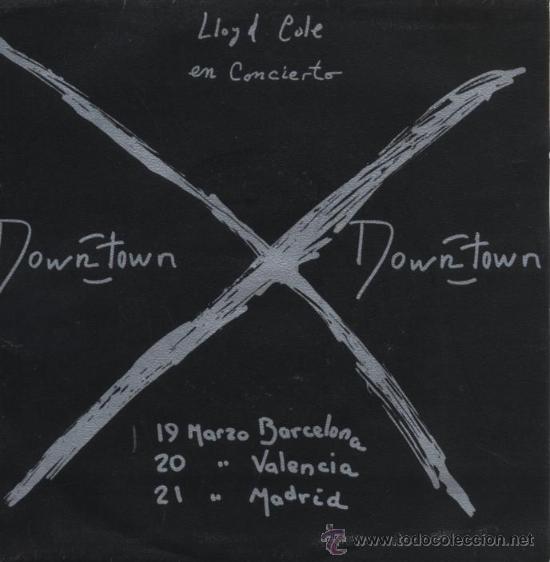 Lloyd Cole
en Concierto
Downtown
Downtown
19 Marzo Barcelona
20 " Valencia
21 " Madrid
www.todocoleccion.net